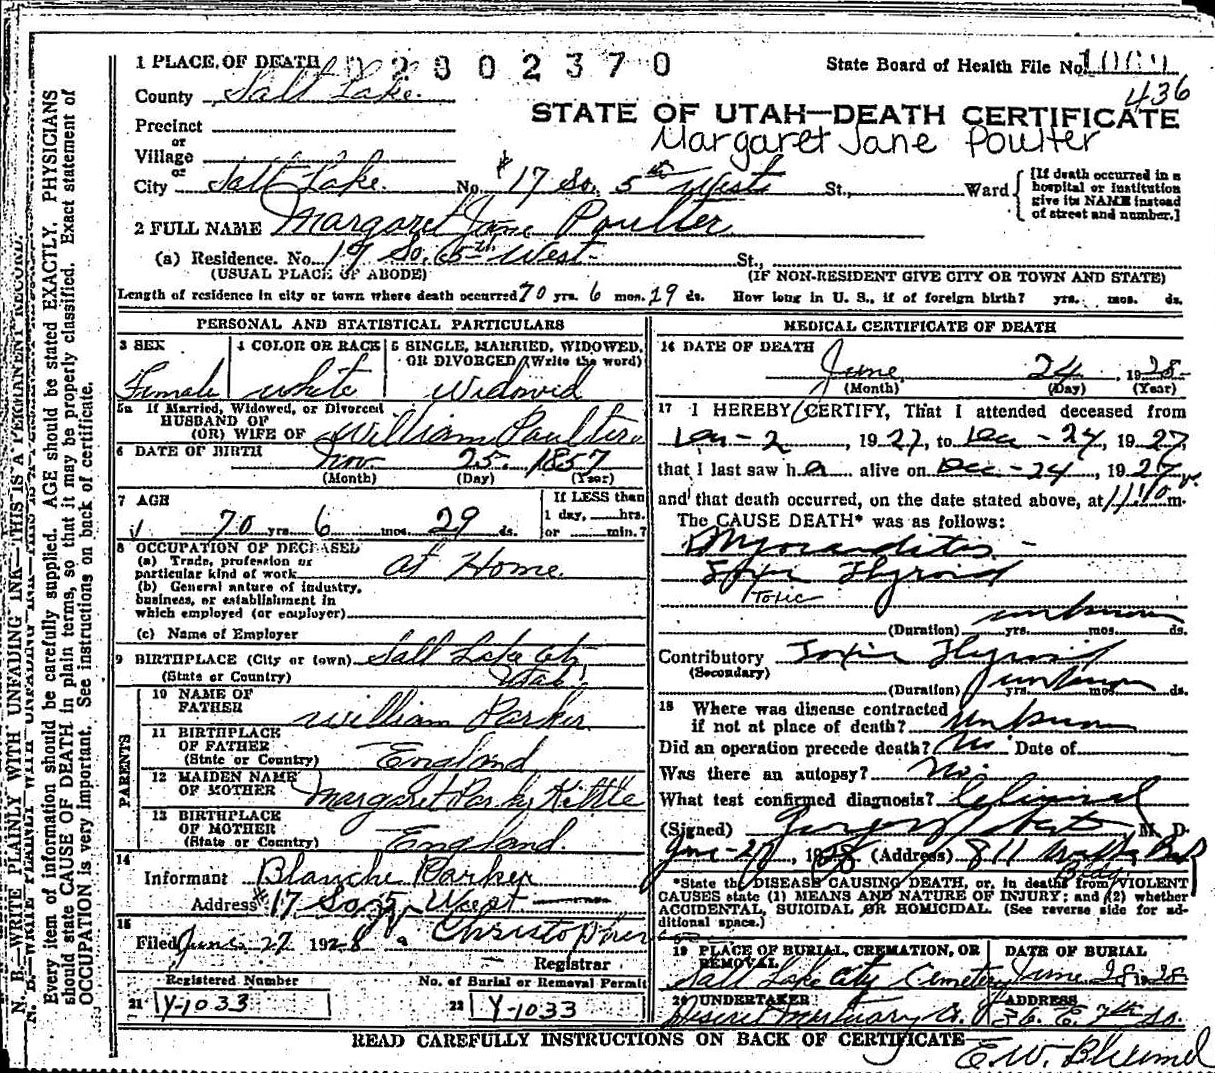 1 PLACE OF DEATH 02802370
State Board of Health File No.
436
County Salt Lake.
STATE OF UTAH—DEATH CERTIFICATE
Precinct
or
Margaret Jane Poulter
Village
or
City Salt Lake. No. #17 So. 5th West St., Ward
[If death occurred in a hospital or institution give its NAME instead of street and number.]
2 FULL NAME Margaret Jane Poulter
(a) Residence. No. 17 So. 5th West St.,
(USUAL PLACE OF ABODE) (IF NON-RESIDENT GIVE CITY OR TOWN AND STATE)
Length of residence in city or town where death occurred 70 yrs. 6 mos. 29 ds. How long in U. S., if of foreign birth? yrs. mos. ds.
PERSONAL AND STATISTICAL PARTICULARS
3 SEX 4 COLOR OR RACE 5 SINGLE, MARRIED, WIDOWED, OR DIVORCED (Write the word)
Female white Widowed
5a If Married, Widowed, or Divorced
HUSBAND OF
(OR) WIFE OF William Poulter
6 DATE OF BIRTH Nov. 25. 1857
(Month) (Day) (Year)
7 AGE If LESS than
1 day, hrs.
70 yrs. 6 mos. 29 ds. or min.?
8 OCCUPATION OF DECEASED
(a) Trade, profession or
particular kind of work at Home.
(b) General nature of industry,
business, or establishment in
which employed (or employer)
(c) Name of Employer
9 BIRTHPLACE (City or town) Salt Lake City
(State or Country) Utah.
PARENTS
10 NAME OF
FATHER William Parker
11 BIRTHPLACE
OF FATHER
(State or Country) England
12 MAIDEN NAME
OF MOTHER Margaret Kittle
13 BIRTHPLACE
OF MOTHER
(State or Country) England.
14
Informant Blanche Parker
Address #17 So 5 West
15
Filed June 27 1928 Christopher
Registrar
Registered Number No. of Burial or Removal Permit
21 Y-1033 22 Y-1033
MEDICAL CERTIFICATE OF DEATH
16 DATE OF DEATH June 24, 1928
(Month) (Day) (Year)
17 I HEREBY CERTIFY, That I attended deceased from
2, 1927, to Dec-24, 1927,
that I last saw her alive on Dec-24, 1927
and that death occurred, on the date stated above, at m.
The CAUSE DEATH* was as follows:
Myocarditis
Toxic Thyroid
Toxic
(Duration) unknown yrs. mos. ds.
Contributory Toxic Thyroid
(Secondary)
(Duration) unknown yrs. mos. ds.
18 Where was disease contracted
if not at place of death? Unknown
Did an operation precede death? No. Date of
Was there an autopsy? No.
What test confirmed diagnosis? Clinical
(Signed) M. D.
, 1928 (Address) 811 Bldg
*State the DISEASE CAUSING DEATH, or, in deaths from VIOLENT
CAUSES state (1) MEANS AND NATURE OF INJURY; and (2) whether
ACCIDENTAL, SUICIDAL OR HOMICIDAL. (See reverse side for ad-
ditional space.)
19 PLACE OF BURIAL, CREMATION, OR REMOVAL DATE OF BURIAL
Salt Lake City Cemetery June 28 1928
20 UNDERTAKER ADDRESS
Deseret Mortuary Co. 36. E. 7th So.
READ CAREFULLY INSTRUCTIONS ON BACK OF CERTIFICATE
N. B.—WRITE PLAINLY WITH UNFADING INK—THIS IS A PERMANENT RECORD.
Every item of information should be carefully supplied. AGE should be stated EXACTLY. PHYSICIANS
should state CAUSE OF DEATH in plain terms, so that it may be properly classified. Exact statement of
OCCUPATION is very important. See instructions on back of certificate.